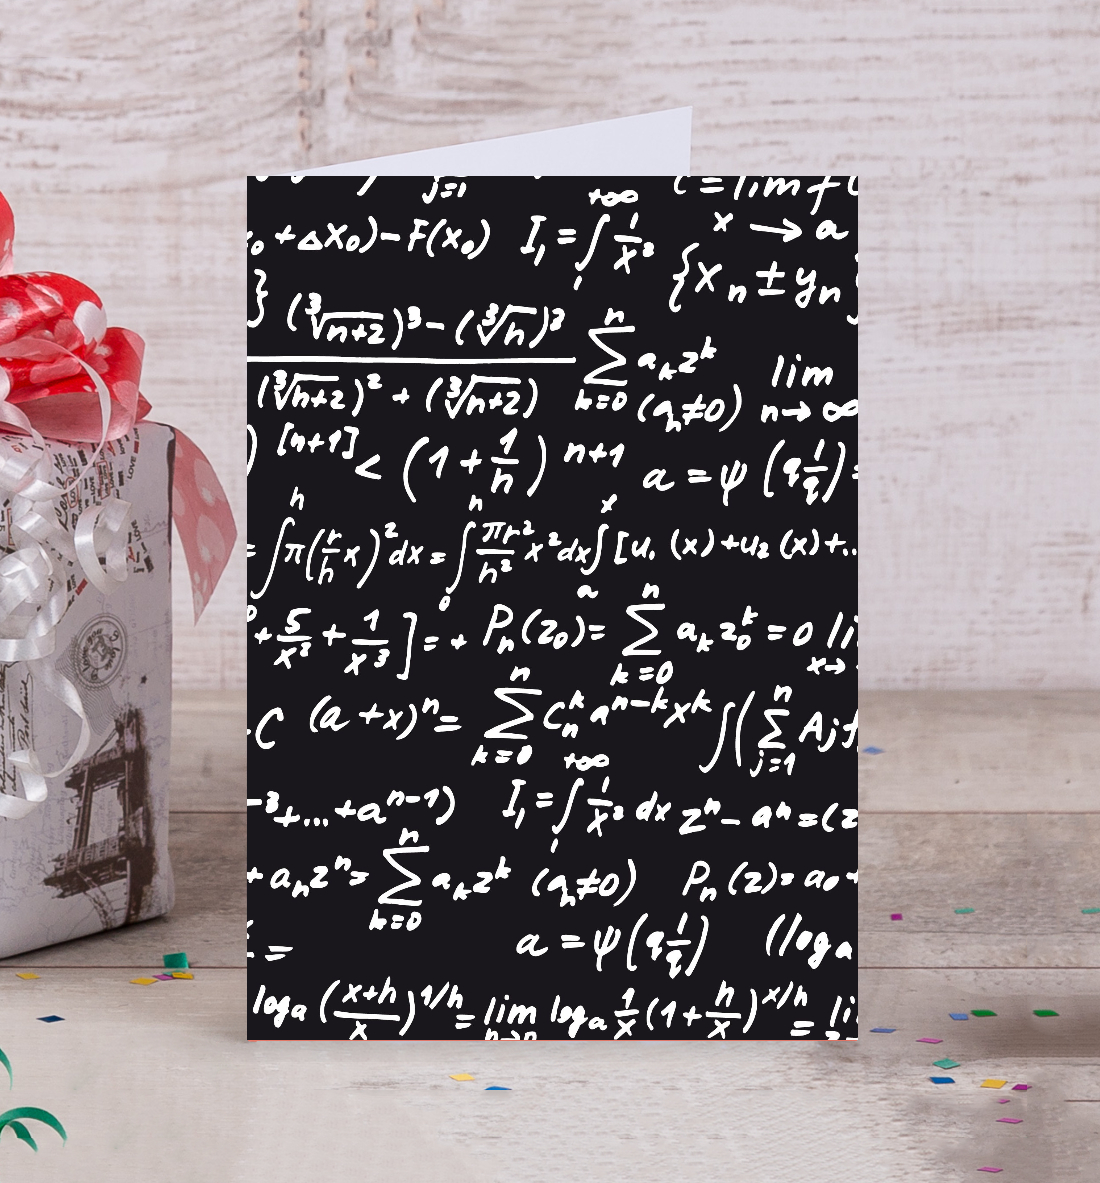 j=1 C = lim f(
₀ + Δx₀) − F(x₀) I₁ = ∫₁^{+∞} 1/x² x → a
} {xₙ ± yₙ
(∛(n+2))³ − (∛n)³ ∑_{k=0}^{n} aₖzᵏ lim
(∛(n+2))² + (∛(n+2)) (aₙ≠0) n→∞
) [n+1] < (1 + 1/n) n+1 a = ψ (q 1/q) =
= ∫^{h} π(r/h x)² dx = ∫₀^{h} πr²/h² x² dx ∫ₐ^{x} [u₁(x)+u₂(x)+..
+ 5/x² + 1/x³ ] = + Pₙ(z₀) = ∑_{k=0}^{n} aₖz₀ᵏ = 0 li x→
C (a + x)ⁿ = ∑_{k=0}^{n} Cₙᵏ aⁿ⁻ᵏ xᵏ ∫(∑_{j=1}^{n} Ajf
−³+...+aⁿ⁻¹) I₁ = ∫₁^{+∞} 1/x² dx zⁿ − aⁿ = (z
+ aₙzⁿ = ∑_{k=0}^{n} aₖzᵏ (aₙ≠0) Pₙ(z) = a₀ +
= a = ψ(q 1/q) (log a
logₐ ((x+h)/x)^{1/h} = lim n→ logₐ 1/x (1 + h/x)^{x/h} = li
LOVE